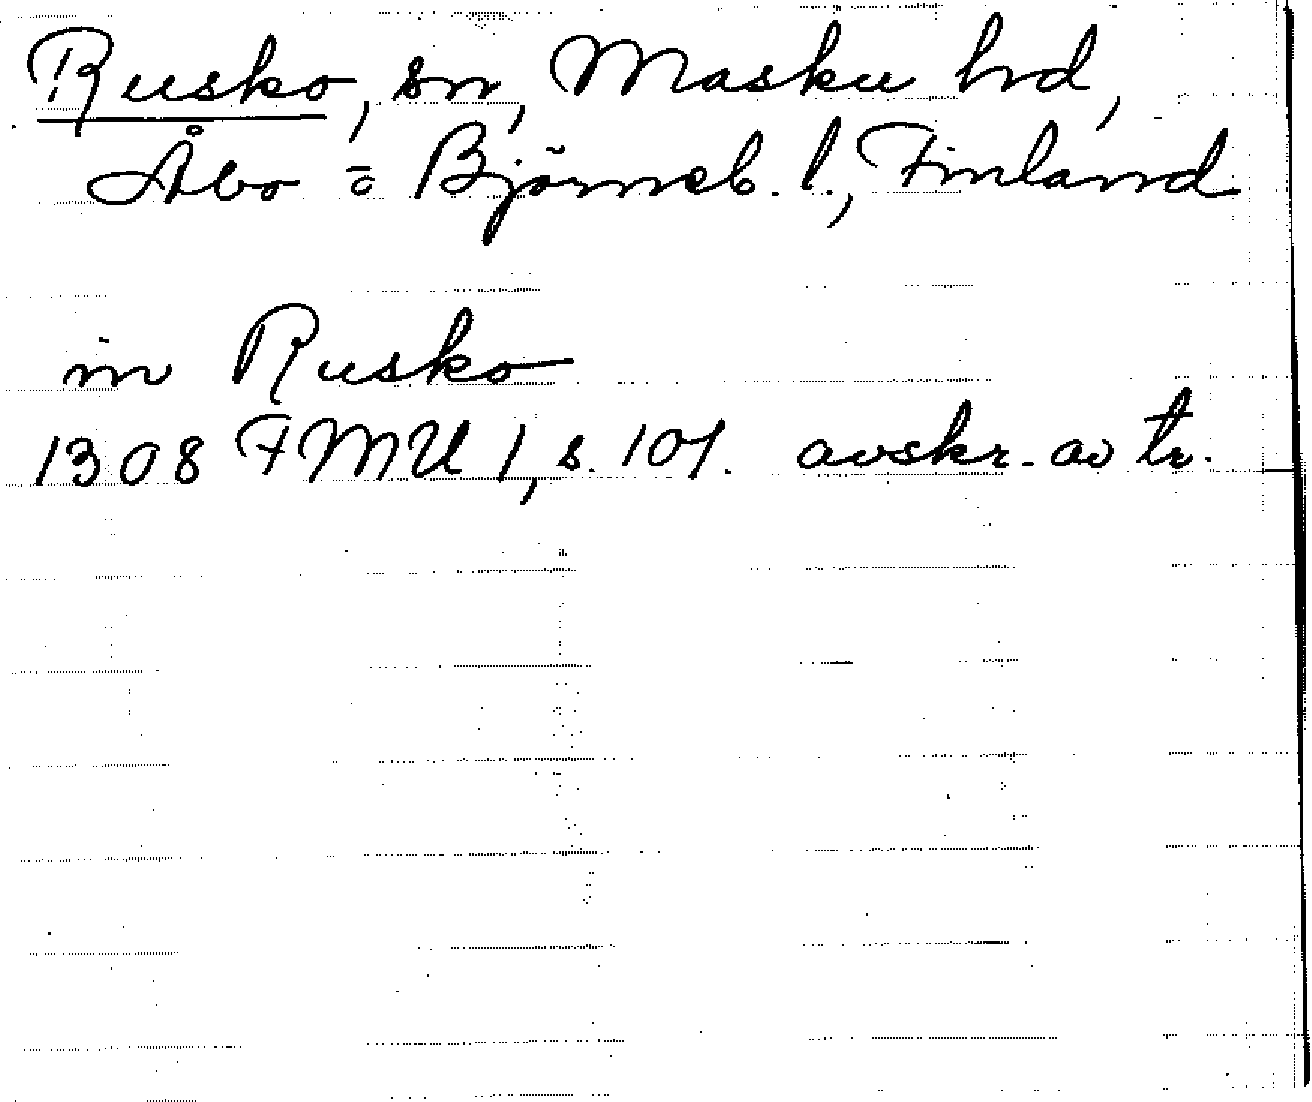 Rusko, sn, Masku hd,
Åbo = Björneb. l., Finland
in Rusko
1308 FMU 1, s. 101. avskr. av tr.